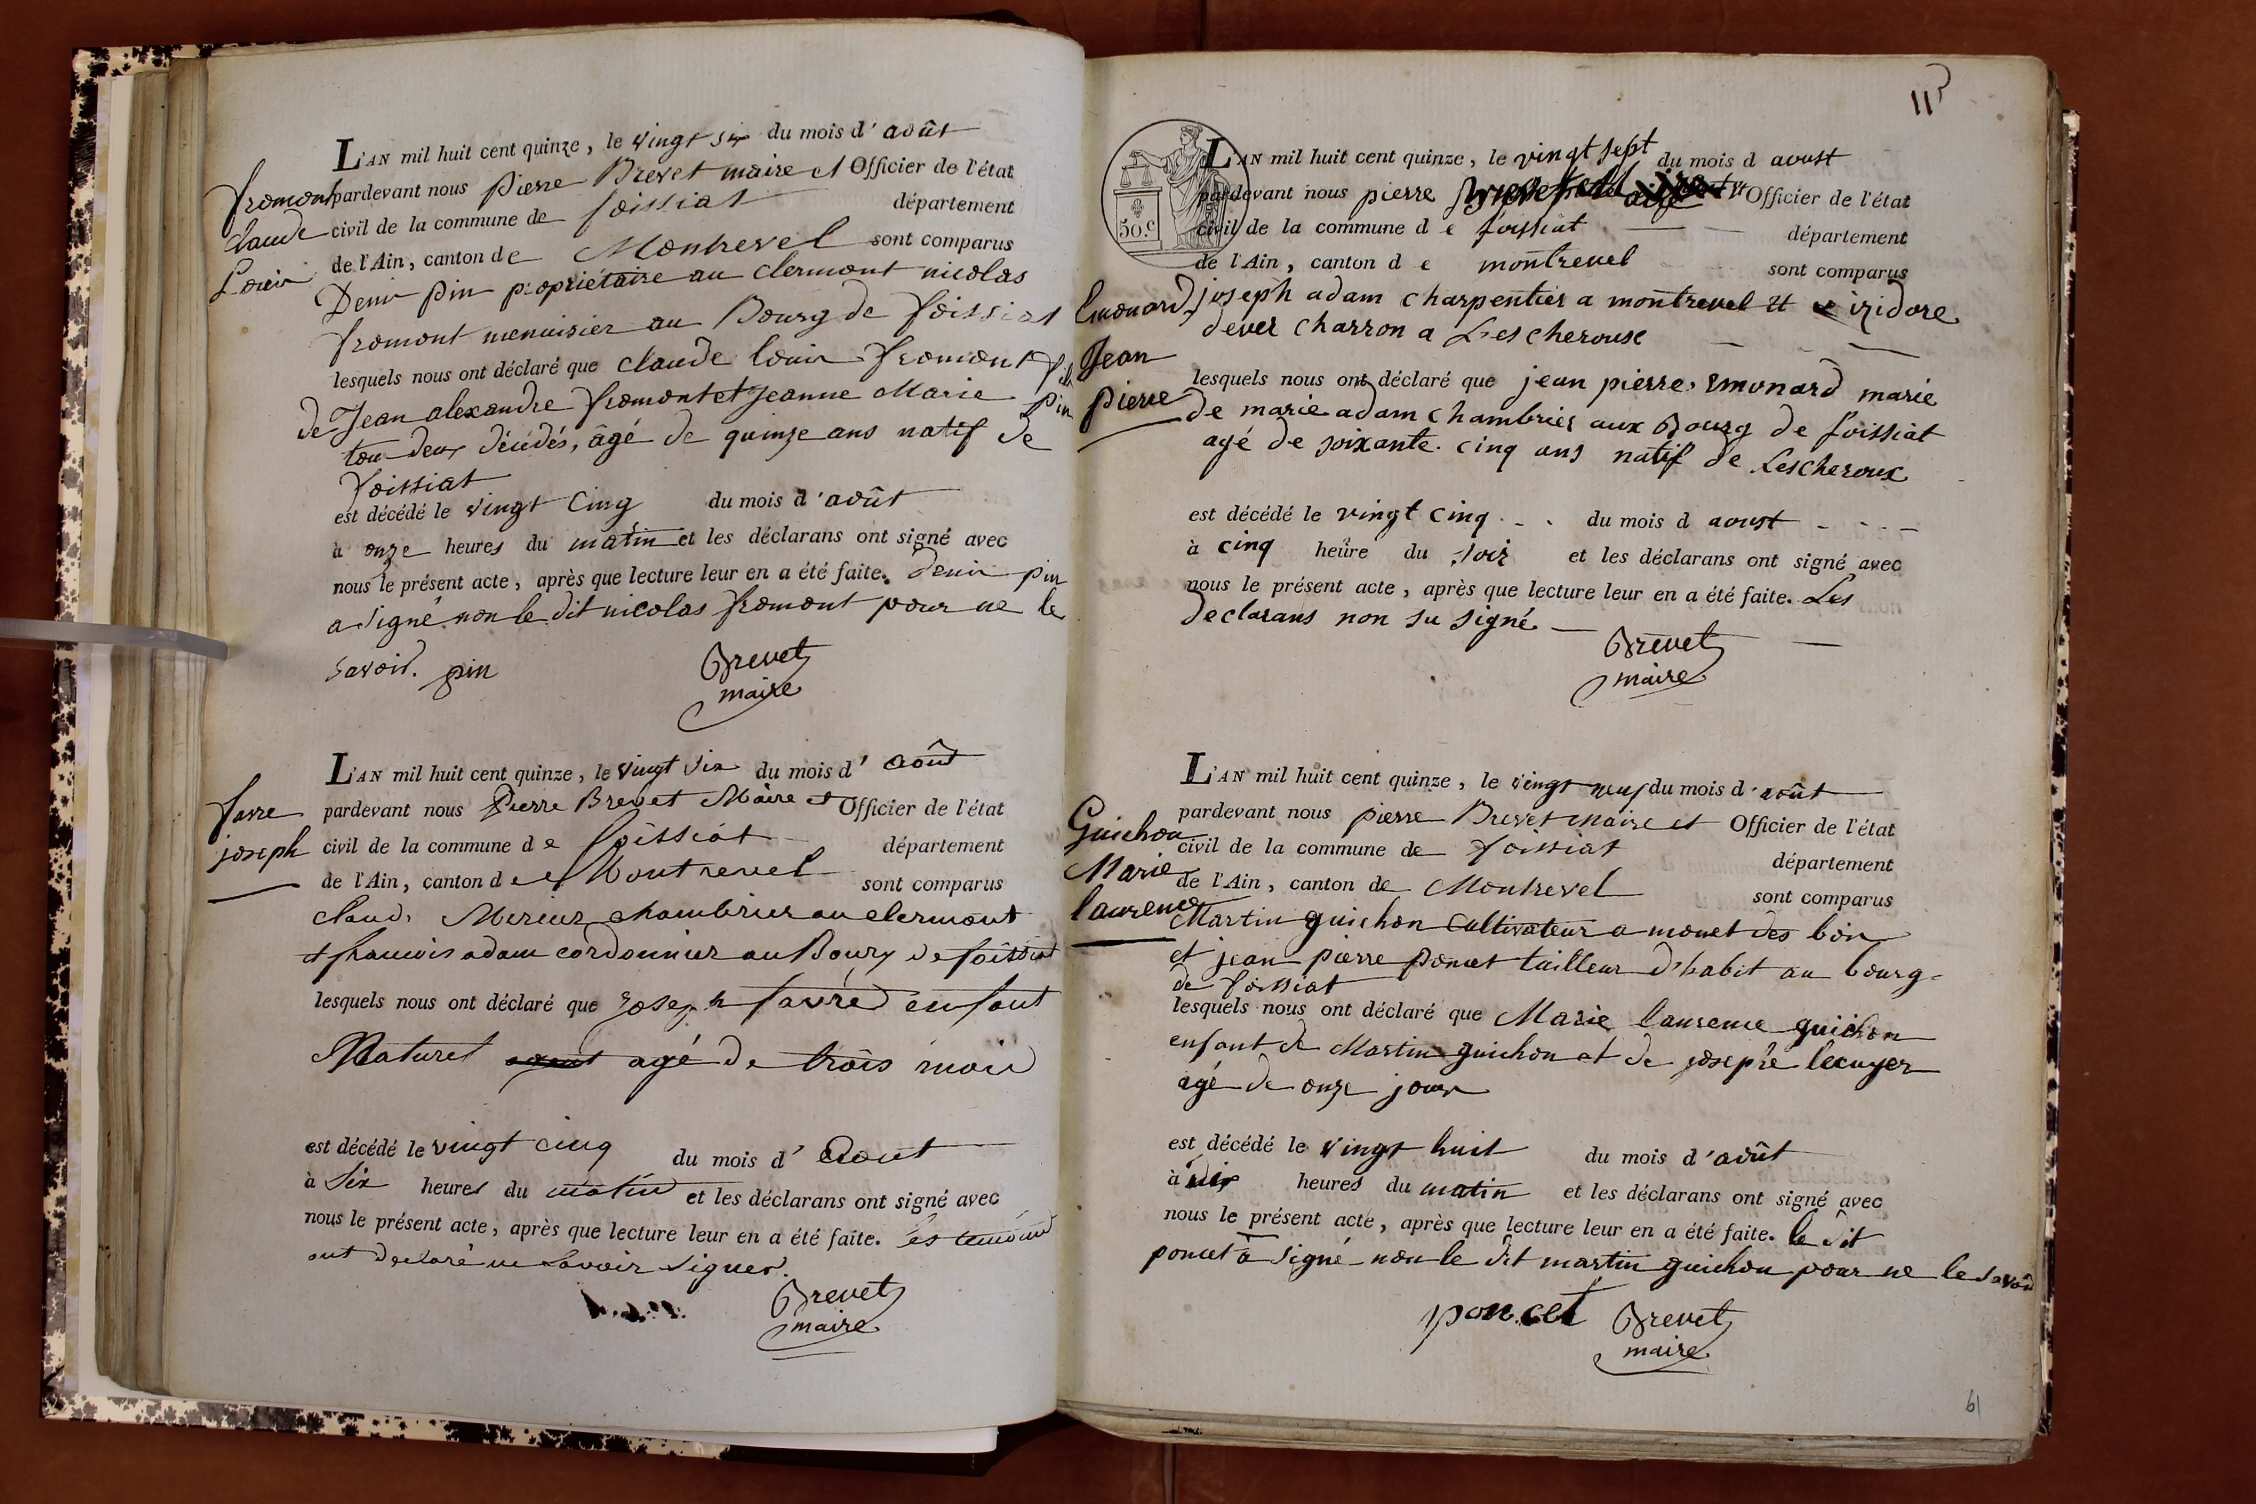 L'AN mil huit cent quinze, le vingt six du mois d'août
pardevant nous pierre Brevet maire et Officier de l'état
civil de la commune de foissiat département
de l'Ain, canton de Montrevel sont comparus
Denis pin propriétaire au clermont nicolas
fromont menuisier au Bourg de foissiat
lesquels nous ont déclaré que claude louis fromont fils
de Jean alexandre fromont et Jeanne Marie pin
tou deux décédés, âgé de quinze ans natif de
foissiat
est décédé le vingt cinq du mois d'août
à onze heures du matin et les déclarans ont signé avec
nous le présent acte, après que lecture leur en a été faite. denis pin
a signé non le dit nicolas fromont pour ne le
savoir. pin Brevet
maire
fromont
claude
Louis
L'AN mil huit cent quinze, le vingt six du mois d'Août
pardevant nous Pierre Brevet Maire et Officier de l'état
civil de la commune de foissiat département
de l'Ain, canton de Montrevel sont comparus
claude Mercier chambrier au clermont
et francois adam cordonnier au Bourg de foissiat
lesquels nous ont déclaré que Joseph favre enfant
Naturel agé de trois mois
est décédé le vingt cinq du mois d'Aout
à Six heures du matin et les déclarans ont signé avec
nous le présent acte, après que lecture leur en a été faite. les temoins
ont declaré ne savoir signer.
Brevet
maire
favre
joseph
115
L'AN mil huit cent quinze, le vingt sept du mois d aoust
pardevant nous pierre Officier de l'état
civil de la commune d e foissiat département
de l'Ain, canton d e montrevel sont comparus
joseph adam charpentier a montrevel et izidore
dever charron a Lescheroux
lesquels nous ont déclaré que jean pierre emonard marie
de marie adam chambrier aux Bourg de foissiat
agé de soixante cinq ans natif de Lescheroux
est décédé le vingt cinq du mois d aoust
à cinq heure du soir et les déclarans ont signé avec
nous le présent acte, après que lecture leur en a été faite. Les
declarans non su signé
Brevet
maire
50.c
Emonard
Jean
pierre
L'AN mil huit cent quinze, le vingt neuf du mois d'août
pardevant nous pierre Brevet maire et Officier de l'état
civil de la commune de foissiat département
de l'Ain, canton de Montrevel sont comparus
Martin guichon cultivateur a monet des bois
et jean pierre poncet tailleur d'habit au bourg
de foissiat
lesquels nous ont déclaré que Marie laurence guichon
enfant de Martin guichon et de josephe lecuyer
agé de onze jours
est décédé le vingt huit du mois d'août
à dix heures du matin et les déclarans ont signé avec
nous le présent acte, après que lecture leur en a été faite. le dit
poncet à signé non le dit martin guichon pour ne le savoir
poncet Brevet
maire
Guichon
Marie
laurence
61